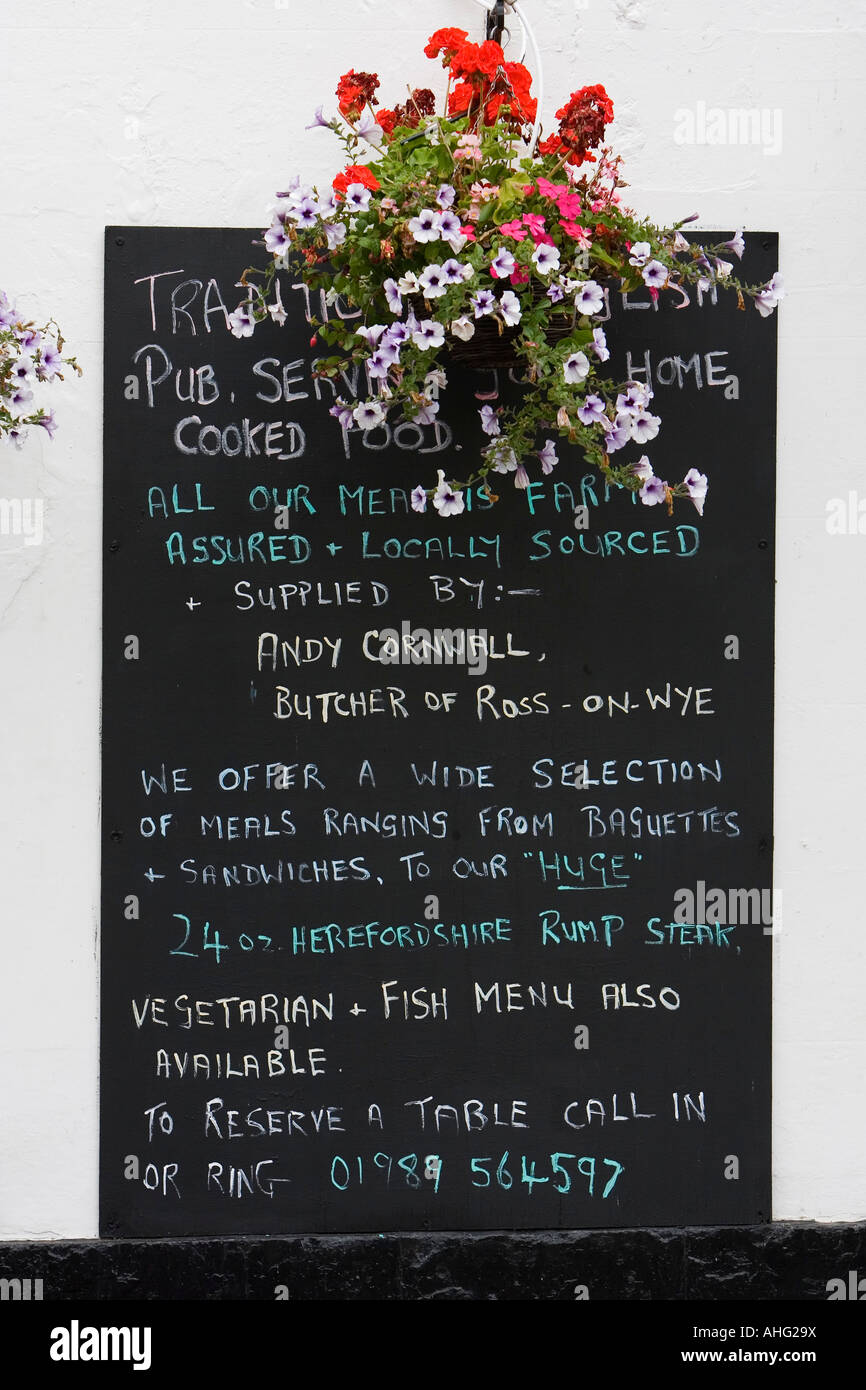 TRADITIONAL ENGLISH
PUB, SERVING HOME
COOKED FOOD.
ALL OUR MEAT IS FARM
ASSURED + LOCALLY SOURCED
+ SUPPLIED BY:-
ANDY CORNWALL,
BUTCHER OF ROSS-ON-WYE
WE OFFER A WIDE SELECTION
OF MEALS RANGING FROM BAGUETTES
+ SANDWICHES, TO OUR "HUGE"
24oz HEREFORDSHIRE RUMP STEAK,
VEGETARIAN + FISH MENU ALSO
AVAILABLE.
TO RESERVE A TABLE CALL IN
OR RING 01989 564597
alamy
Image ID: AHG29X
www.alamy.com